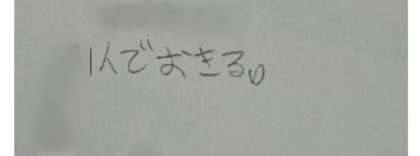 1人でおきる。